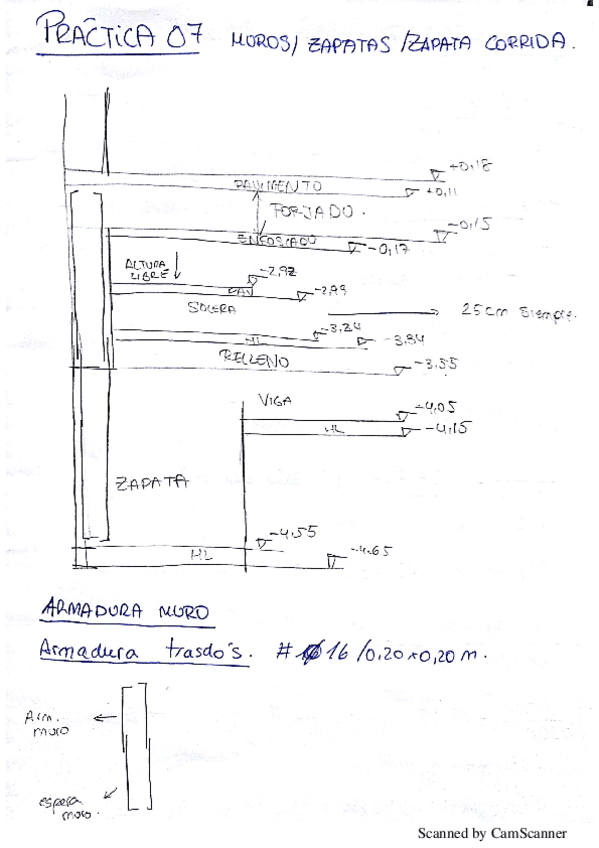 PRÁCTICA 07 MUROS/ ZAPATAS /ZAPATA CORRIDA.
+0,18
PAVIMENTO
+0,11
FORJADO.
-0,15
ENFOSCADO
-0,17
ALTURA
LIBRE
-2,92
PAV
-2,99
SOLERA
25cm siempre.
-3,24
HL
-3,34
RELLENO
-3,55
VIGA
-4,05
HL
-4,15
ZAPATA
-4,55
HL
-4,65
ARMADURA MURO
Armadura trasdo's. # Ø16 /0,20x0,20 m.
Arm.
muro
espera
muro.
Scanned by CamScanner